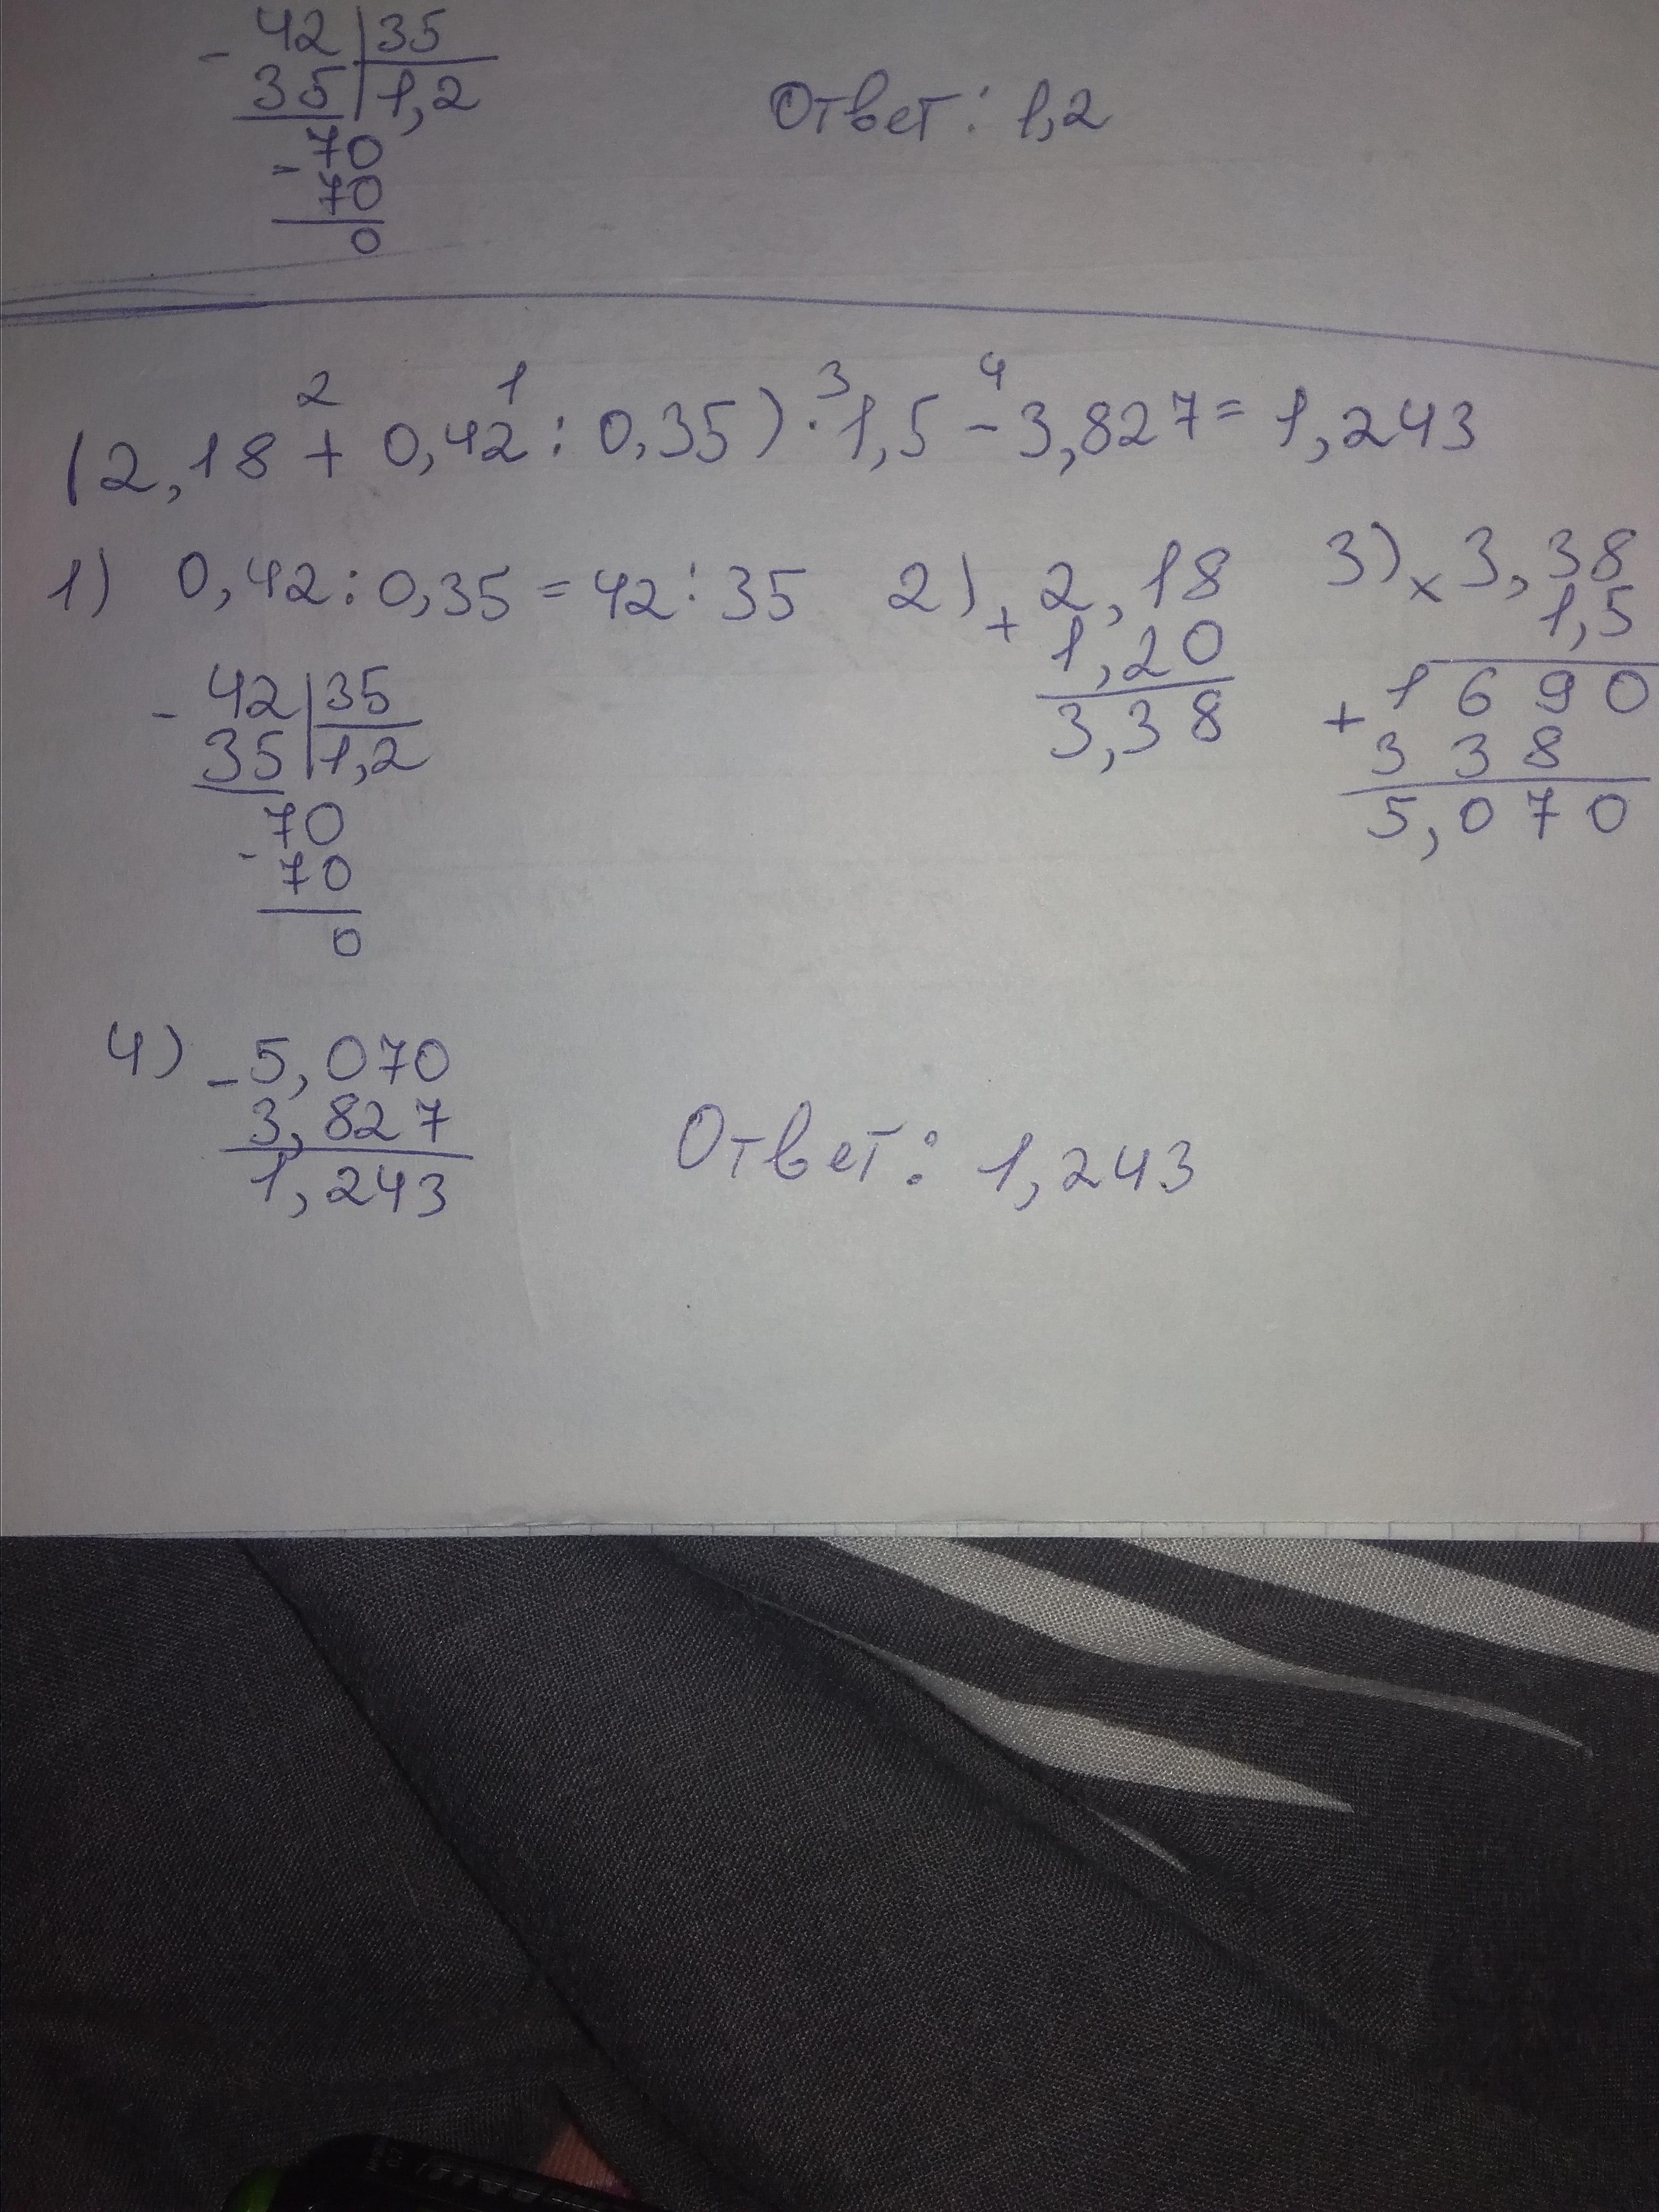 - 42 | 35
35 | 1,2
- 70
70
0
Ответ: 1,2
2 1 3 4
(2,18 + 0,42 : 0,35) · 1,5 - 3,827 = 1,243
1) 0,42 : 0,35 = 42 : 35
- 42 | 35
35 | 1,2
- 70
70
0
2) + 2,18
1,20
3,38
3) × 3,38
1,5
+ 1690
338
5,070
4) - 5,070
3,827
1,243
Ответ: 1,243